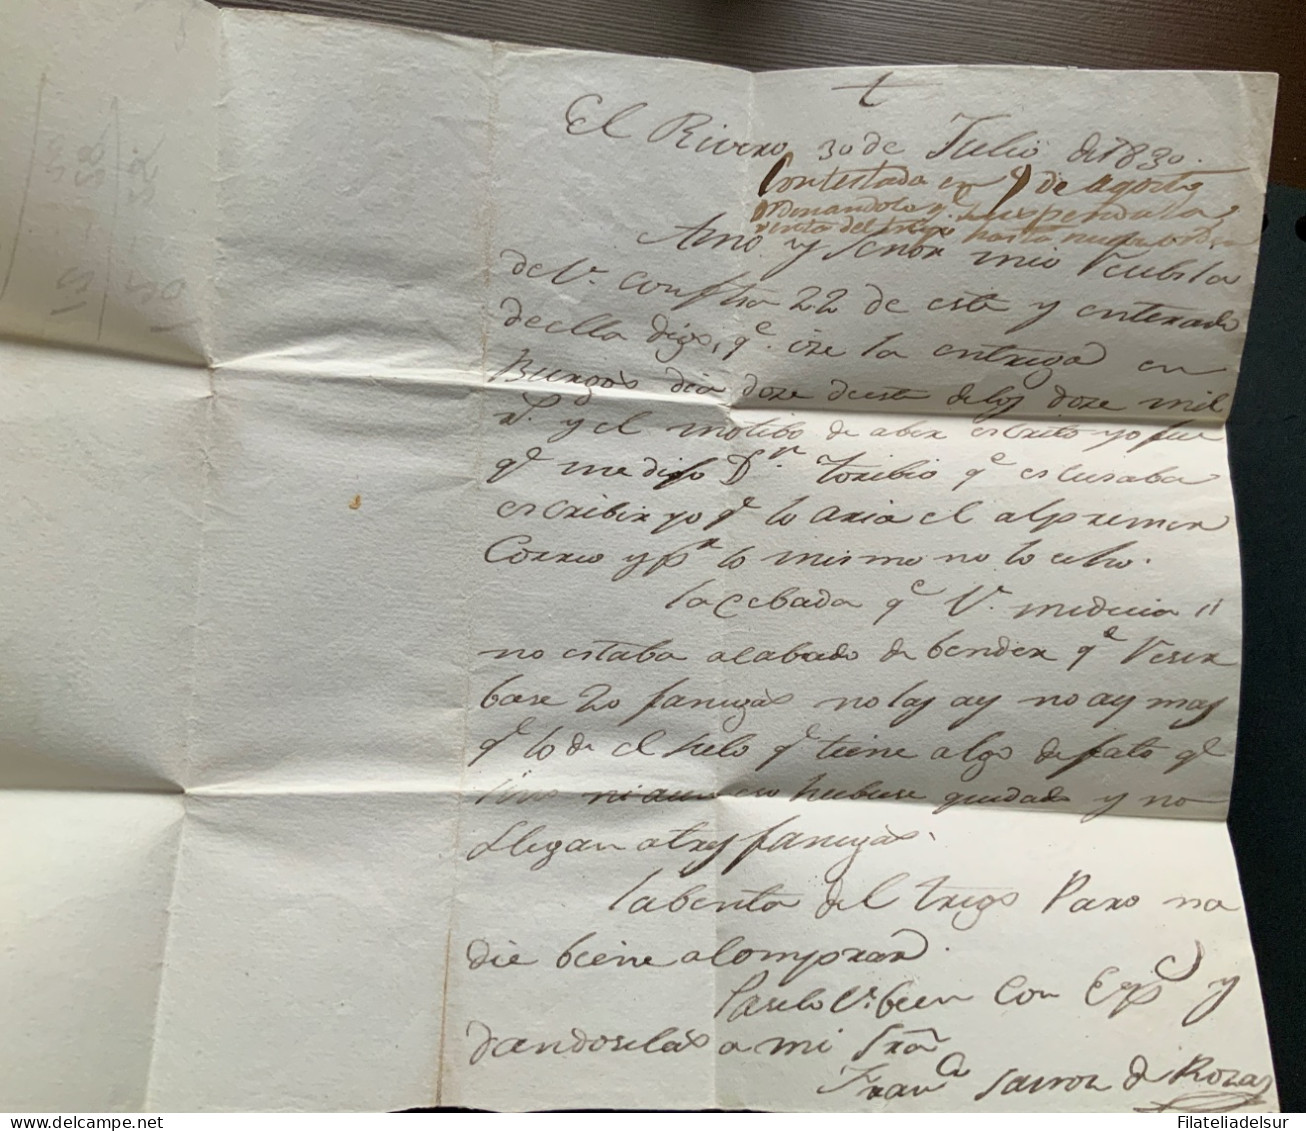 El Rivero 30 de Julio de 1830.
Contestada en 9 de agosto
ordenandole q.e suspenda la
venta del trigo hasta nueva orden
Amo y señor mio Recibi la
de V. con fha 22 de este y enterado
de ella digo, q.e ize la entrega en
Burgos dia doze de este de los doze mil
r.s y el motibo de aber escrito yo fue
q.e me dijo D.n Toribio q.e escusaba
escribir yo q.e lo aria el al primer
Correo y p.r lo mismo no lo echo.
la Cebada q.e V. me decia
no estaba acabado de bender q.e Reser
base 20 fanegas no las ay no ay mas
q.e lo de el suelo q.e tiene algo de q.e
ni aun eso hubiese quedado y no
llegan a tres fanegas.
la benta del trigo Paro na
die biene a comprar.
Paselo V. bien con Esp.c y
dandoselas a mi Sra
Fran.co de Rozas
Filateliadelsur